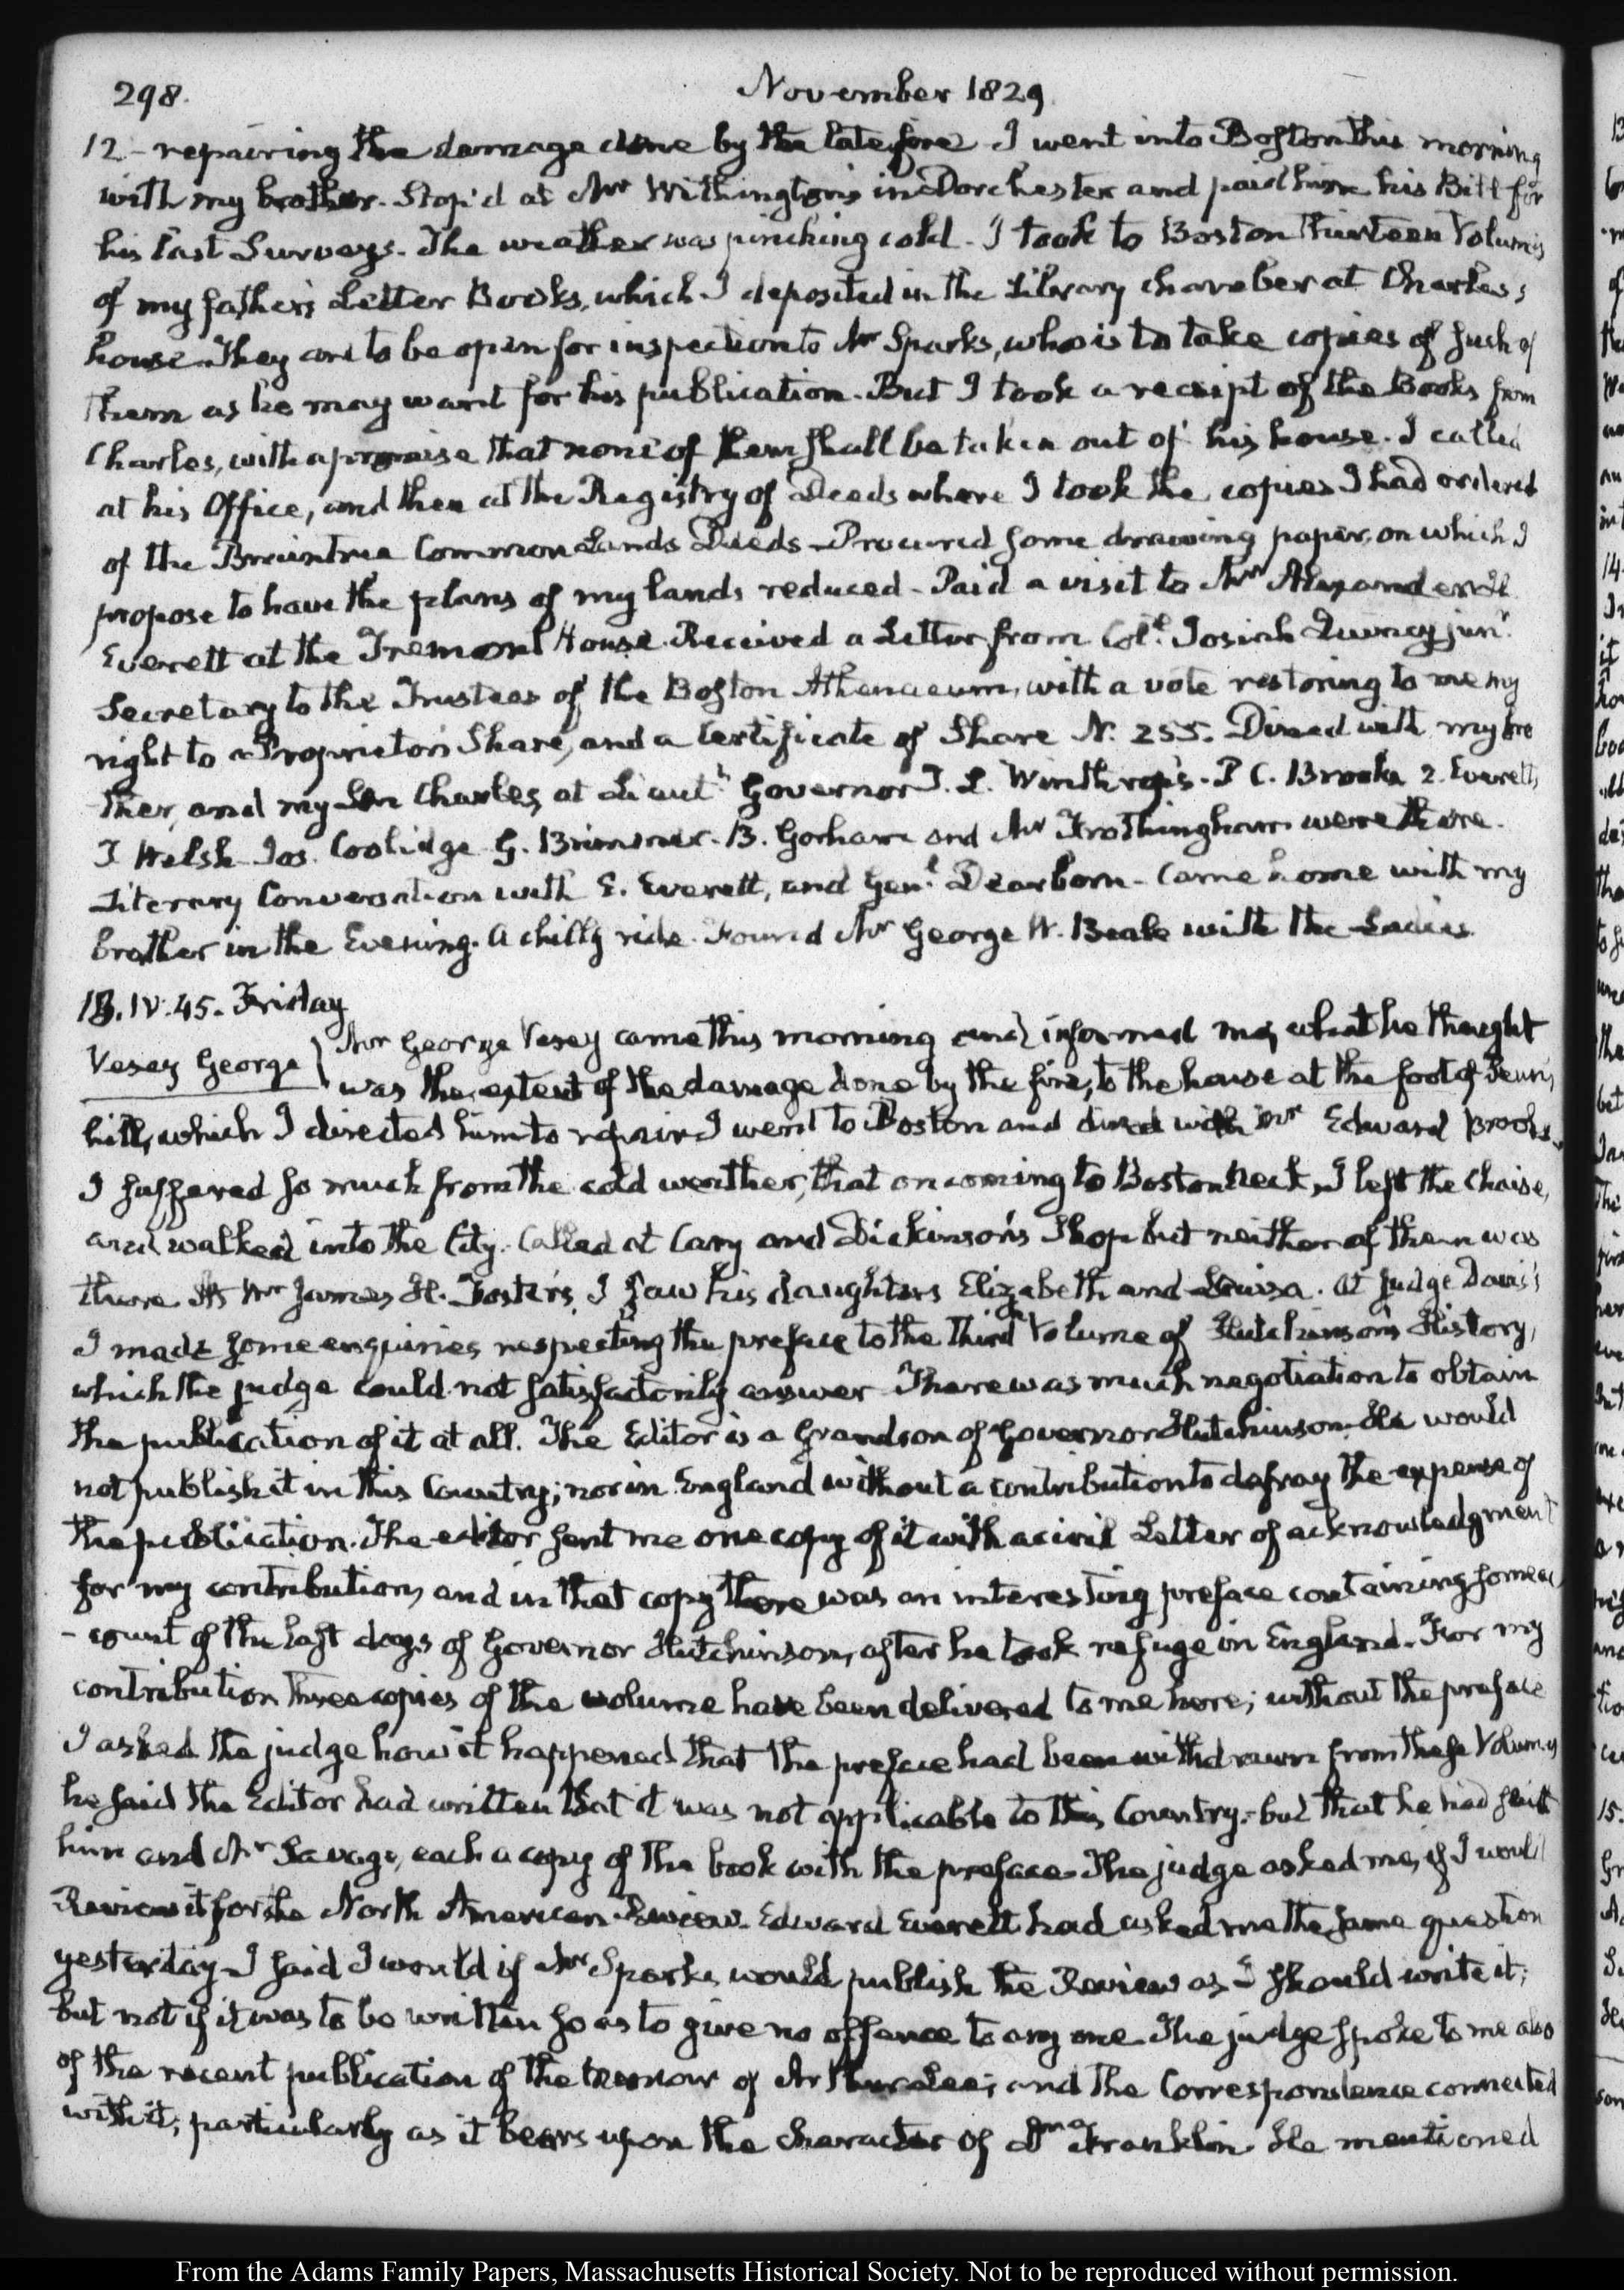 298.
November 1829
12 - repairing the damage done by the late fire. I went into Boston this morning
with my brother. Stop'd at Mr Withington's in Dorchester and paid him his Bill for
his last Surveys. The weather was pinching cold. I took to Boston thirteen Volumes
of my father's Letter Books, which I deposited in the Library chamber at Charles's
house. They are to be open for inspection to Mr Sparks, who is to take copies of such of
them as he may want for his publication. But I took a receipt of the Books from
Charles, with a promise that none of them shall be taken out of his house. I called
at his Office, and then at the Registry of Deeds where I took the copies I had ordered
of the Braintree Common Lands Deeds - Procured some drawing paper, on which I
propose to have the plans of my lands reduced - Paid a visit to Mr Alexander H.
Everett at the Tremont House. Received a Letter from Col. Josiah Quincy junr.
Secretary to the Trustees of the Boston Athenaeum, with a vote restoring to me my
right to a Proprietor's Share, and a Certificate of Share N. 255. Dined with my bro
ther, and my Son Charles, at Lieutt Governor T. L. Winthrop's - P. C. Brooks 2. Everetts
T Welsh Jos. Coolidge G. Brimmer - B. Gorham and Mr Frothingham were there.
Literary Conversation with E. Everett, and Genl Dearborn - Came home with my
brother in the Evening. A chilly ride. Found Mr George W. Beale with the Ladies
13. IV. 45. Friday
Vesey George } Mr George Vesey came this morning and informed me, what he thought
was the extent of the damage done by the fire, to the house at the foot of Penn's
hill, which I directed him to repair. I went to Boston and dined with Mr Edward Brooks.
I suffered so much from the cold weather, that on coming to Boston Neck, I left the Chaise,
and walked into the City. Called at Cary and Dickinson's Shop but neither of them was
there. At Mr James H. Foster's, I saw his daughters Elizabeth and Louisa. At Judge Davis's
I made some enquiries respecting the preface to the Third Volume of Hutchinson's History,
which the judge could not satisfactorily answer. There was much negotiation to obtain
the publication of it at all. The Editor is a Grandson of Governor Hutchinson. He would
not publish it in this Country; nor in England without a contribution to defray the expense of
the publication. The editor sent me one copy of it with a civil Letter of acknowledgment
for my contribution, and in that copy there was an interesting preface containing some ac
- count of the last days of Governor Hutchinson, after he took refuge in England. For my
contribution three copies of the volume have been delivered to me here; without the preface
I asked the judge how it happened that the preface had been withdrawn from these Volumes
he said the Editor had written that it was not applicable to this Country; but that he had sent
him and Mr Savage, each a copy of the book with the preface. The judge asked me, if I would
Review it for the North American Review. Edward Everett had asked me the same question
yesterday. I said I would if Mr Sparks would publish the Review as I should write it;
but not if it was to be written so as to give no offence to any one. The judge spoke to me also
of the recent publication of the memoir of Arthur Lee; and the Correspondence connected
with it; particularly as it bears upon the character of Franklin. He mentioned
From the Adams Family Papers, Massachusetts Historical Society. Not to be reproduced without permission.